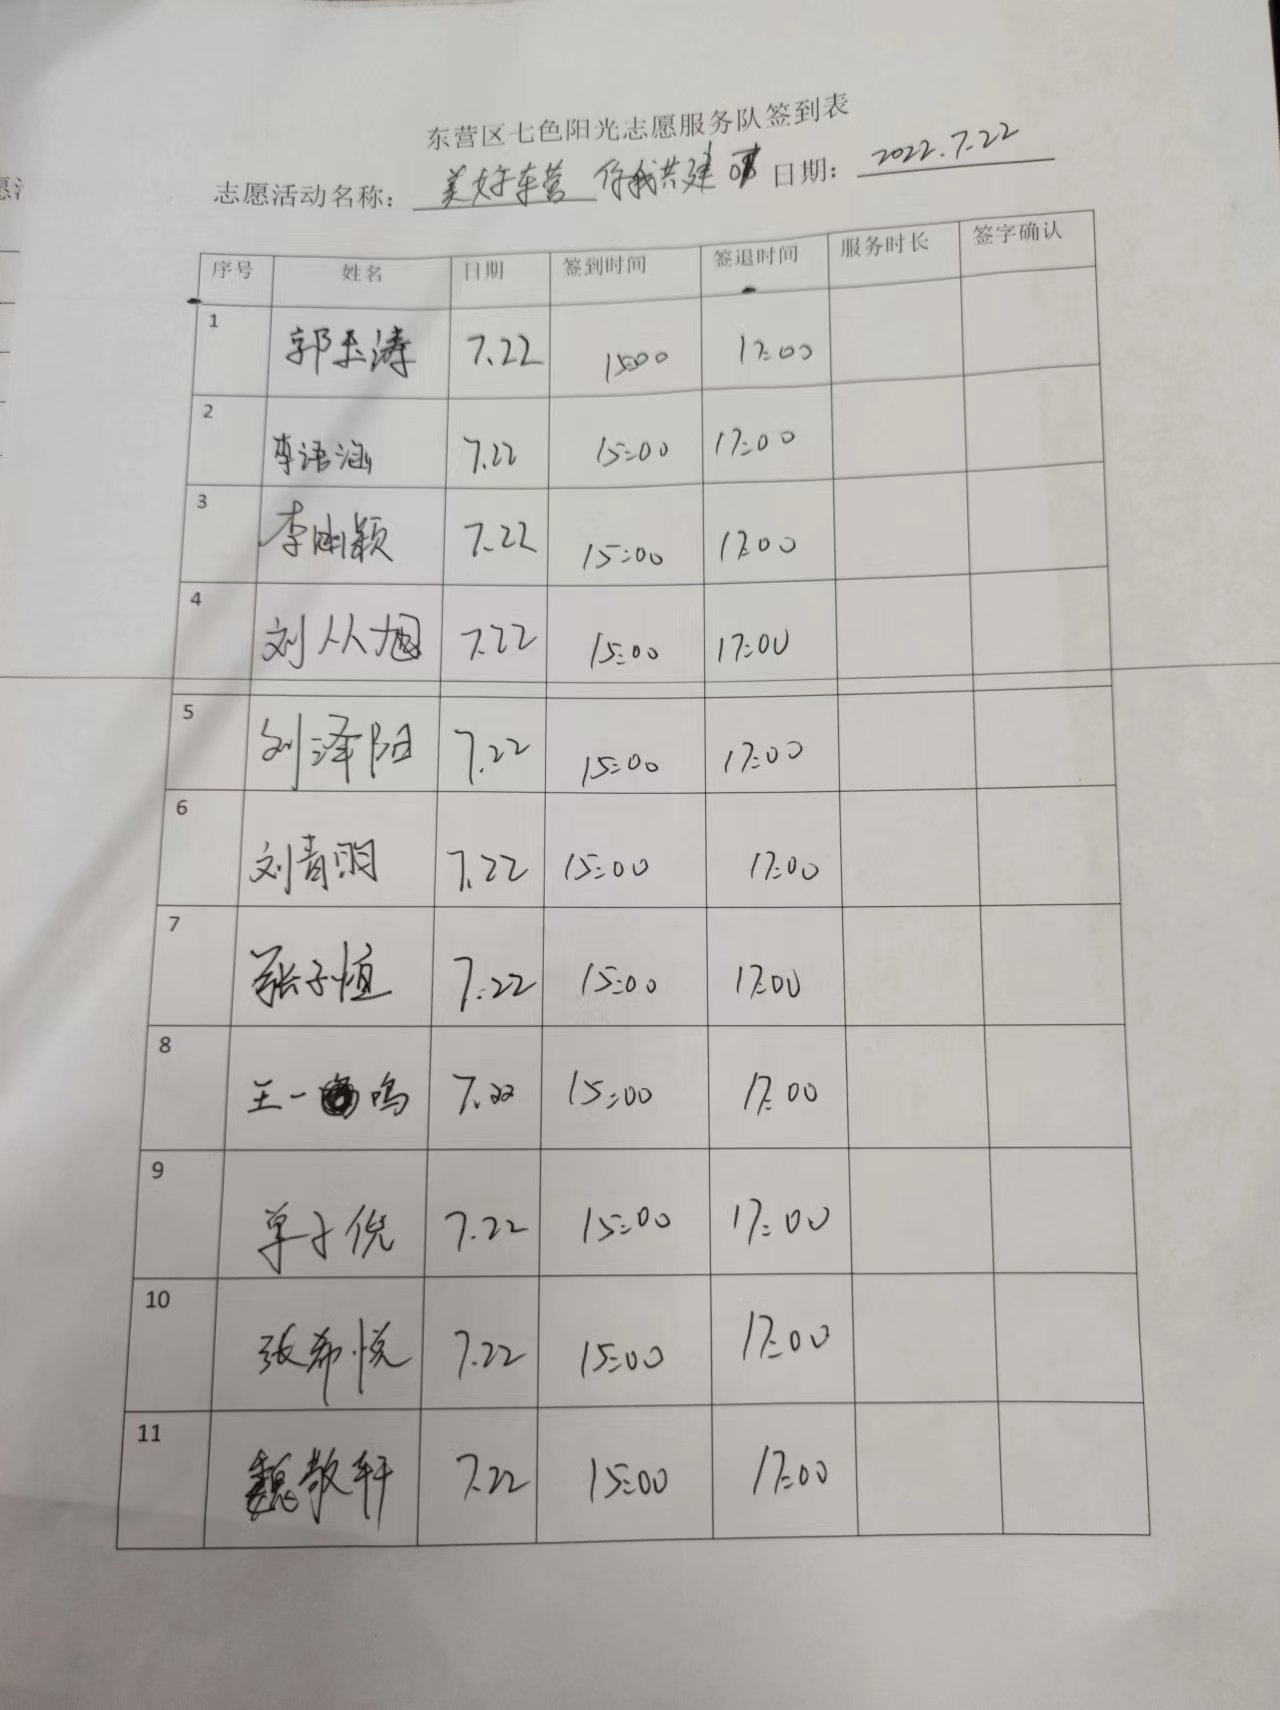 东营区七色阳光志愿服务队签到表
志愿活动名称： 美好东营 你我共建 日期： 2022.7.22
序号 姓名 日期 签到时间 签退时间 服务时长 签字确认
1 郭玉涛 7.22 15:00 17:00
2 李语涵 7.22 15:00 17:00
3 李幽颖 7.22 15:00 17:00
4 刘从旭 7.22 15:00 17:00
5 刘泽阳 7.22 15:00 17:00
6 刘青明 7.22 15:00 17:00
7 张子恒 7.22 15:00 17:00
8 王一鸣 7.22 15:00 17:00
9 单子倪 7.22 15:00 17:00
10 张希悦 7.22 15:00 17:00
11 魏敬轩 7.22 15:00 17:00